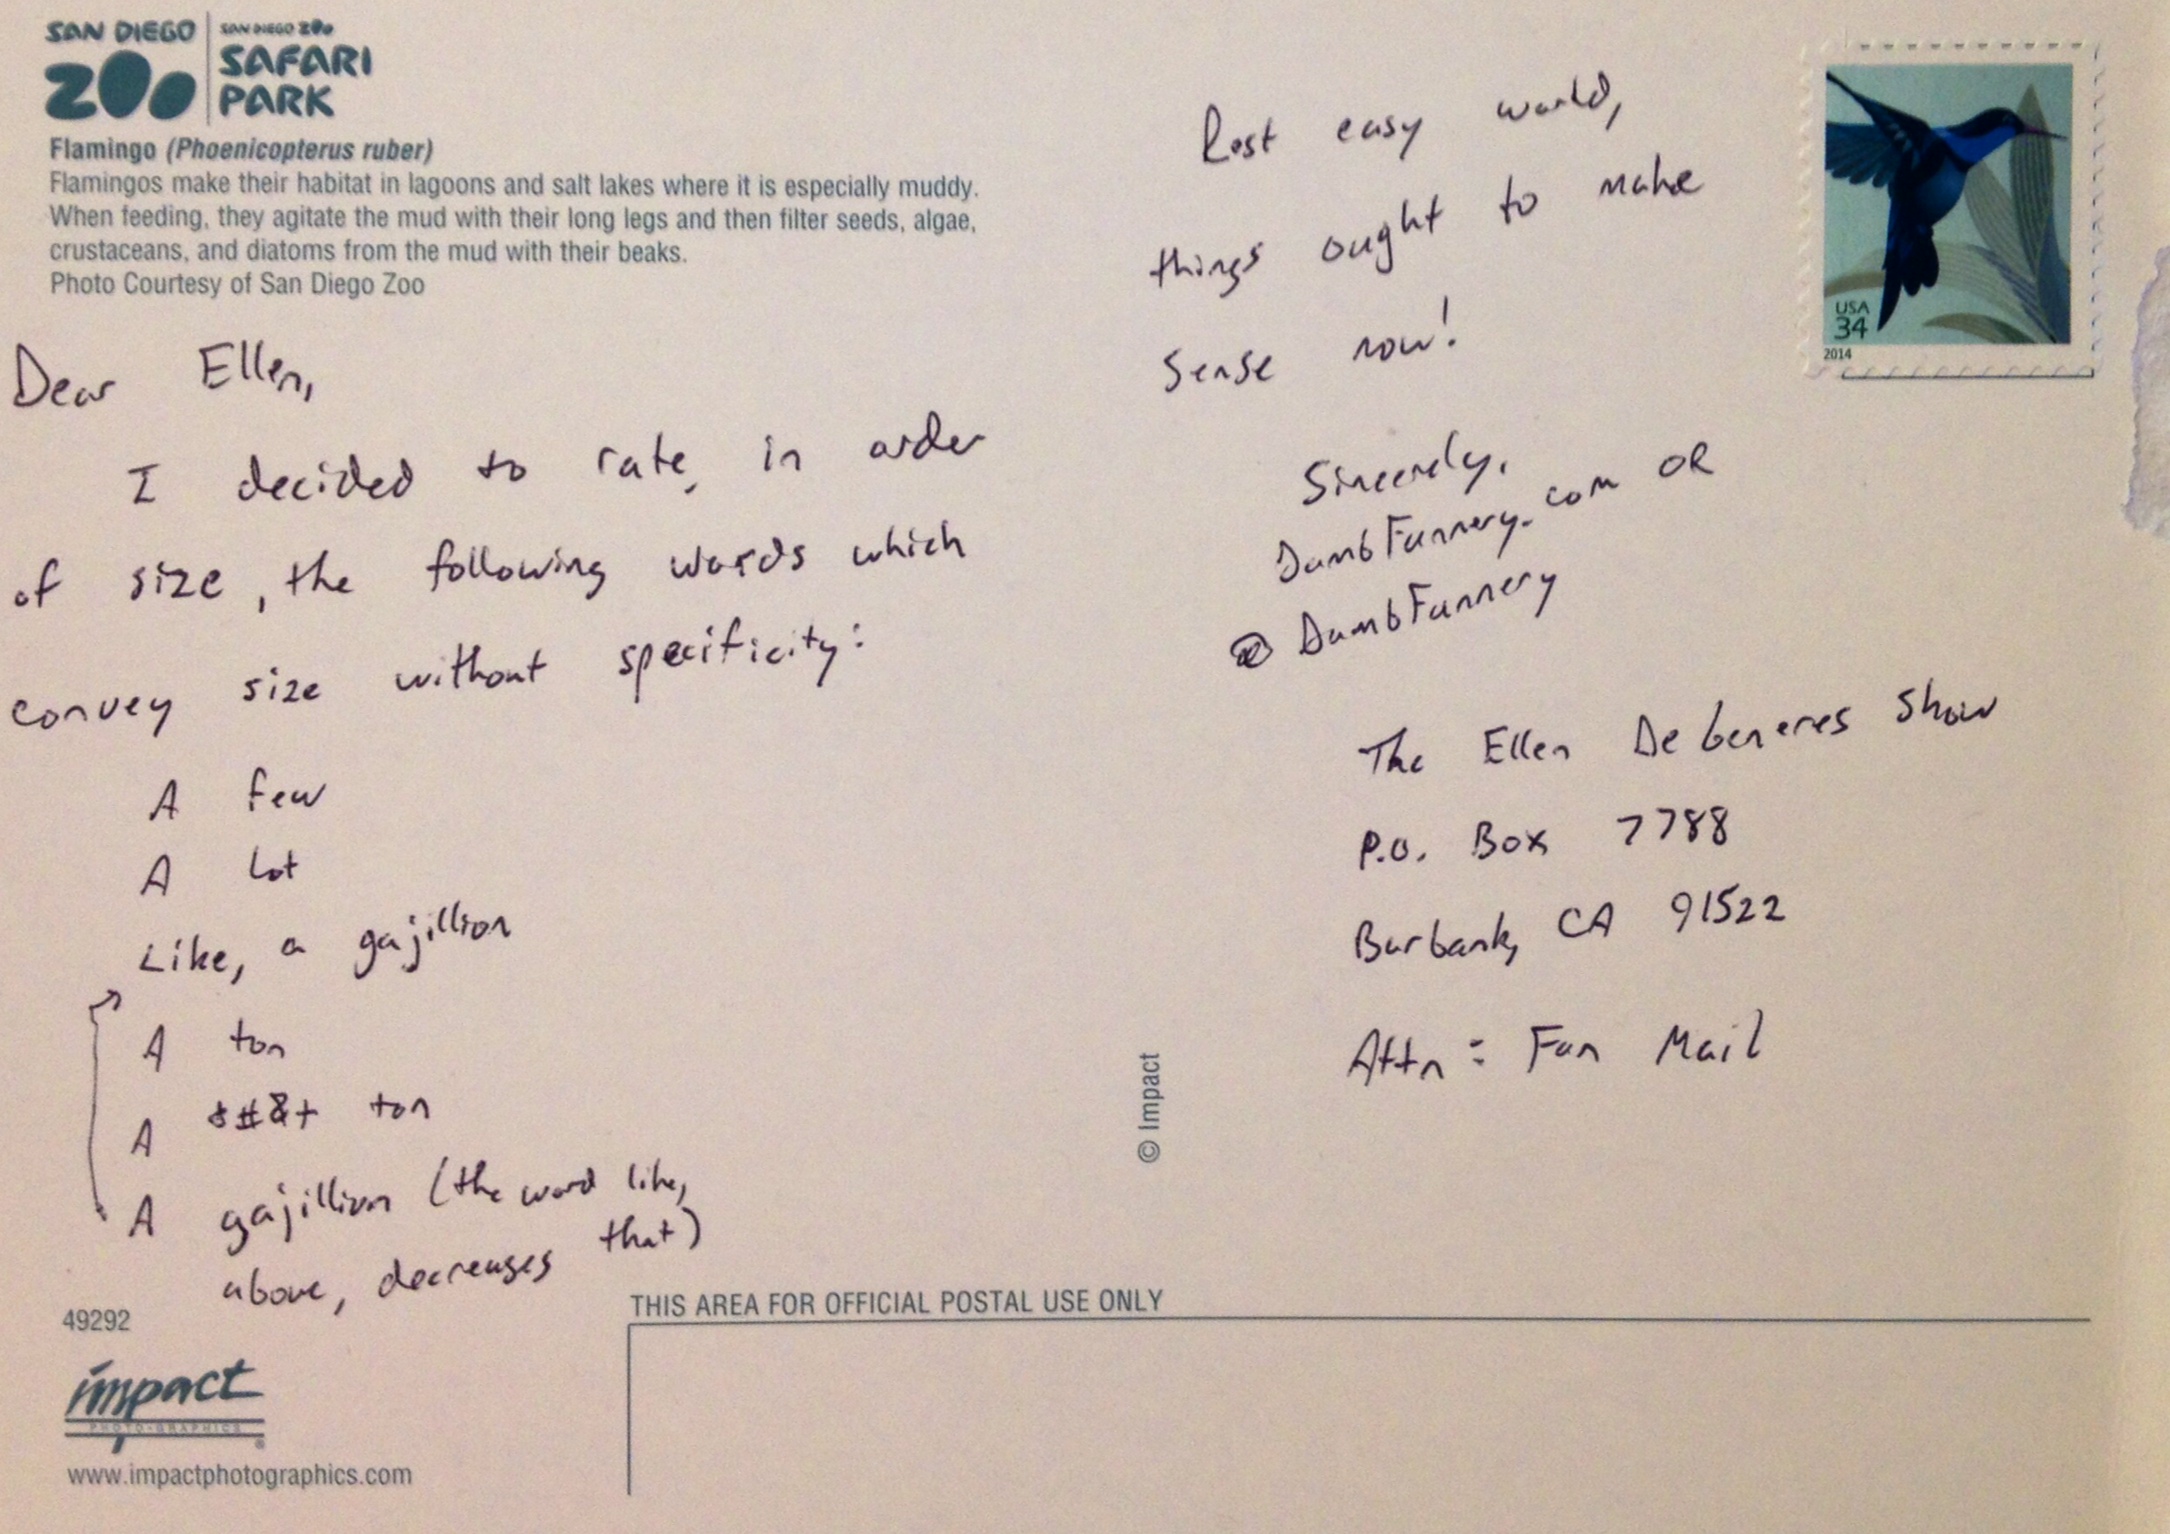 SAN DIEGO ZOO
SAN DIEGO ZOO
SAFARI
PARK
Flamingo (Phoenicopterus ruber)
Flamingos make their habitat in lagoons and salt lakes where it is especially muddy.
When feeding, they agitate the mud with their long legs and then filter seeds, algae,
crustaceans, and diatoms from the mud with their beaks.
Photo Courtesy of San Diego Zoo
Dear Ellen,
I decided to rate, in order
of size, the following words which
convey size without specificity:
A few
A lot
Like, a gajillion
A ton
A *#&+ ton
A gajillion (the word like,
above, decreases that)
49292
impact
PHOTO-GRAPHICS
®
www.impactphotographics.com
Rest easy world,
things ought to make
sense now!
Sincerely,
DumbFunnery.com OR
@DumbFunnery
USA
34
2014
The Ellen DeGeneres Show
P.O. Box 7788
Burbank, CA 91522
Attn: Fan Mail
© Impact
THIS AREA FOR OFFICIAL POSTAL USE ONLY